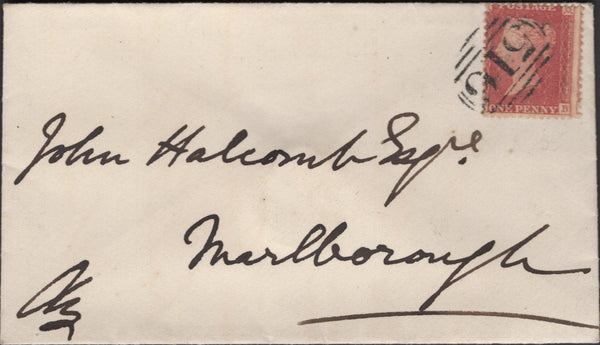 POSTAGE
516
ONE PENNY B
John Halcomb Esqre.
Marlborough